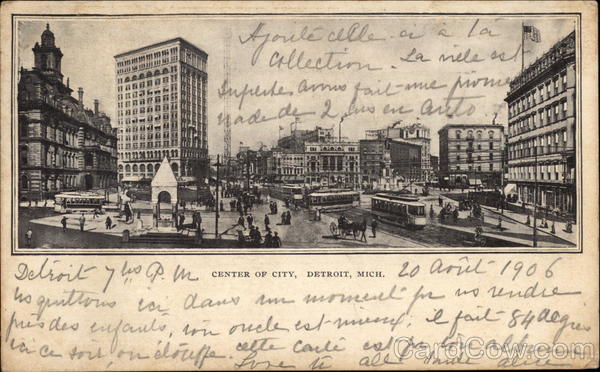 Ajoute celle ci à la
Collection. La ville est
superbe avons fait une prome
nade de 2 en auto
Detroit 7 hs P.M
CENTER OF CITY, DETROIT, MICH.
20 Août 1906
ns quittons ici dans un moment pr ns rendre
près des enfants, mon oncle est mieux, il fait 84 degrés
ici ce soir, on étouffe. cette carte est
CardCow.com